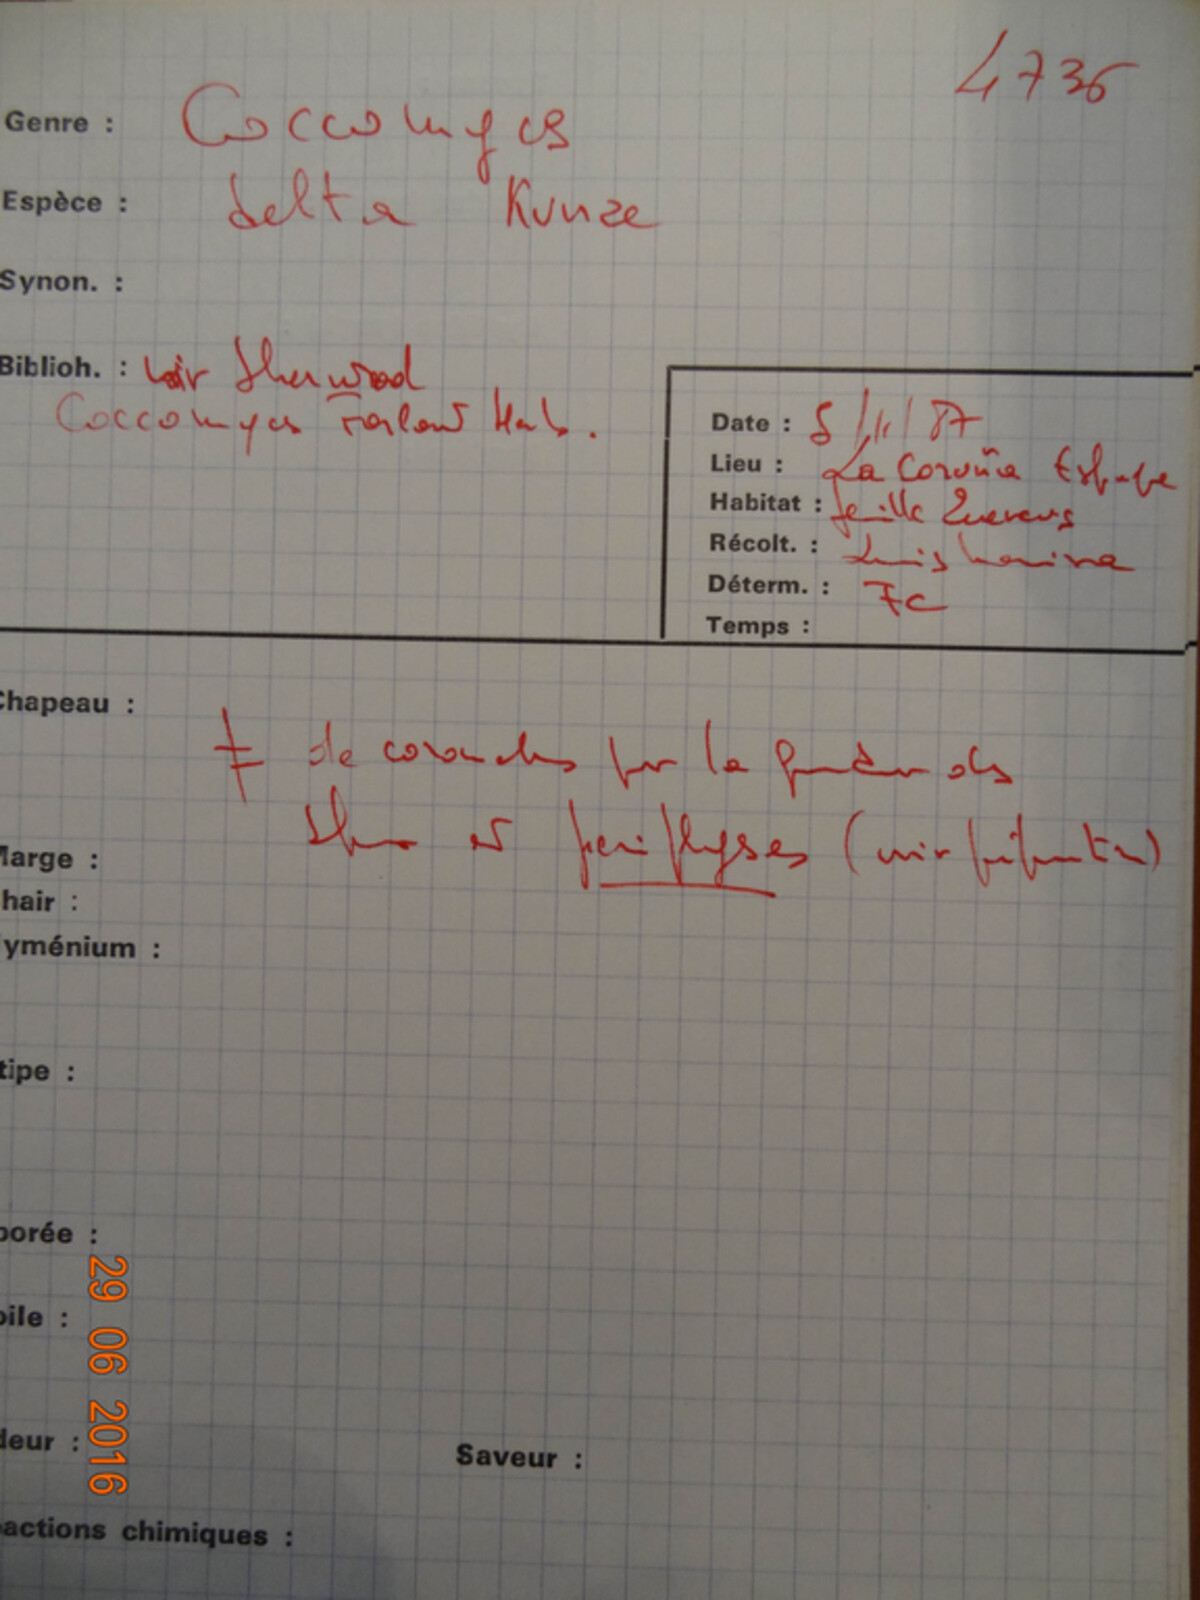 4736
Genre : Coccomyces
Espèce : delta Kunze
Synon. :
Biblioh. : voir Sherwood
Coccomyces Farlow Herb.
Date : 5/11/87
Lieu : La Coruña Espagne
Habitat : feuille Quercus
Récolt. : Luis
Déterm. : FC
Temps :
Chapeau :
≠ de coronatus par la grandeur des
Marge : et periphyses (voir
hair :
yménium :
tipe :
porée :
pile :
deur : Saveur :
actions chimiques :
29 06 2016